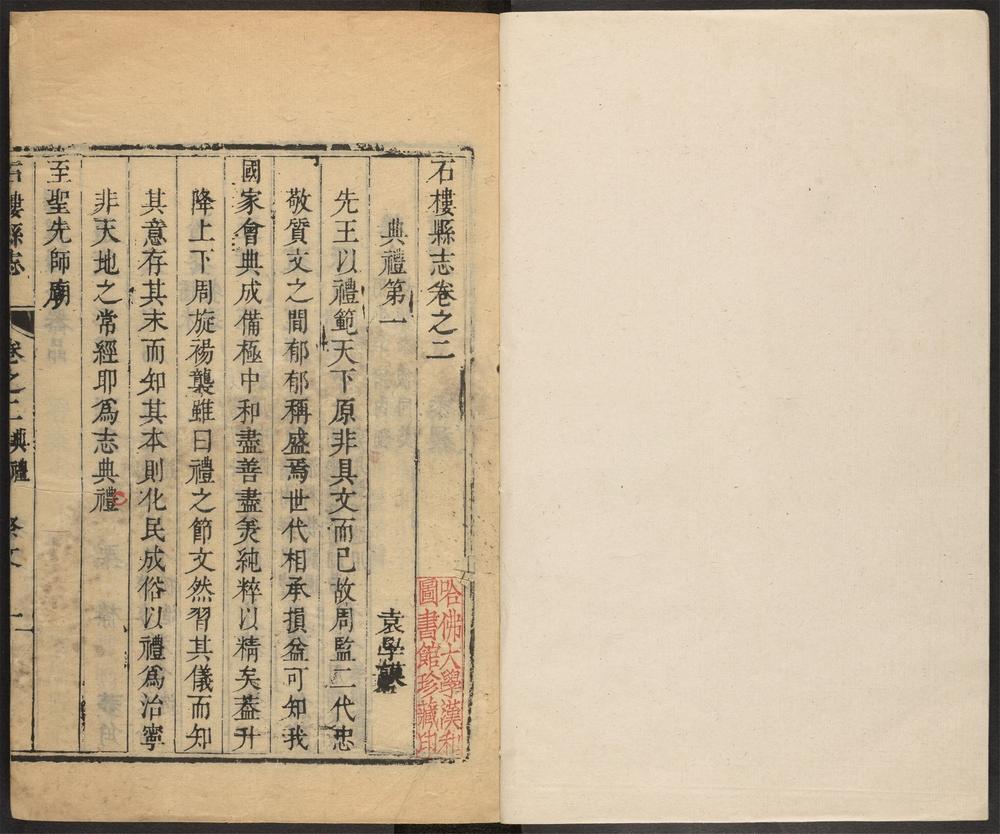 石樓縣志卷之二
典禮第一
袁學謨
先王以禮範天下原非具文而已故周監二代忠
敬質文之間郁郁稱盛焉世代相承損益可知我
國家會典成備極中和盡善盡羙純粹以精矣葢升
降上下周旋裼襲雖曰禮之節文然習其儀而知
其意存其末而知其本則化民成俗以禮爲治寧
非天地之常經耶爲志典禮
至聖先師廟
石樓縣志 卷之二 典禮 祭文 一
哈佛大學漢和
圖書館珍藏印